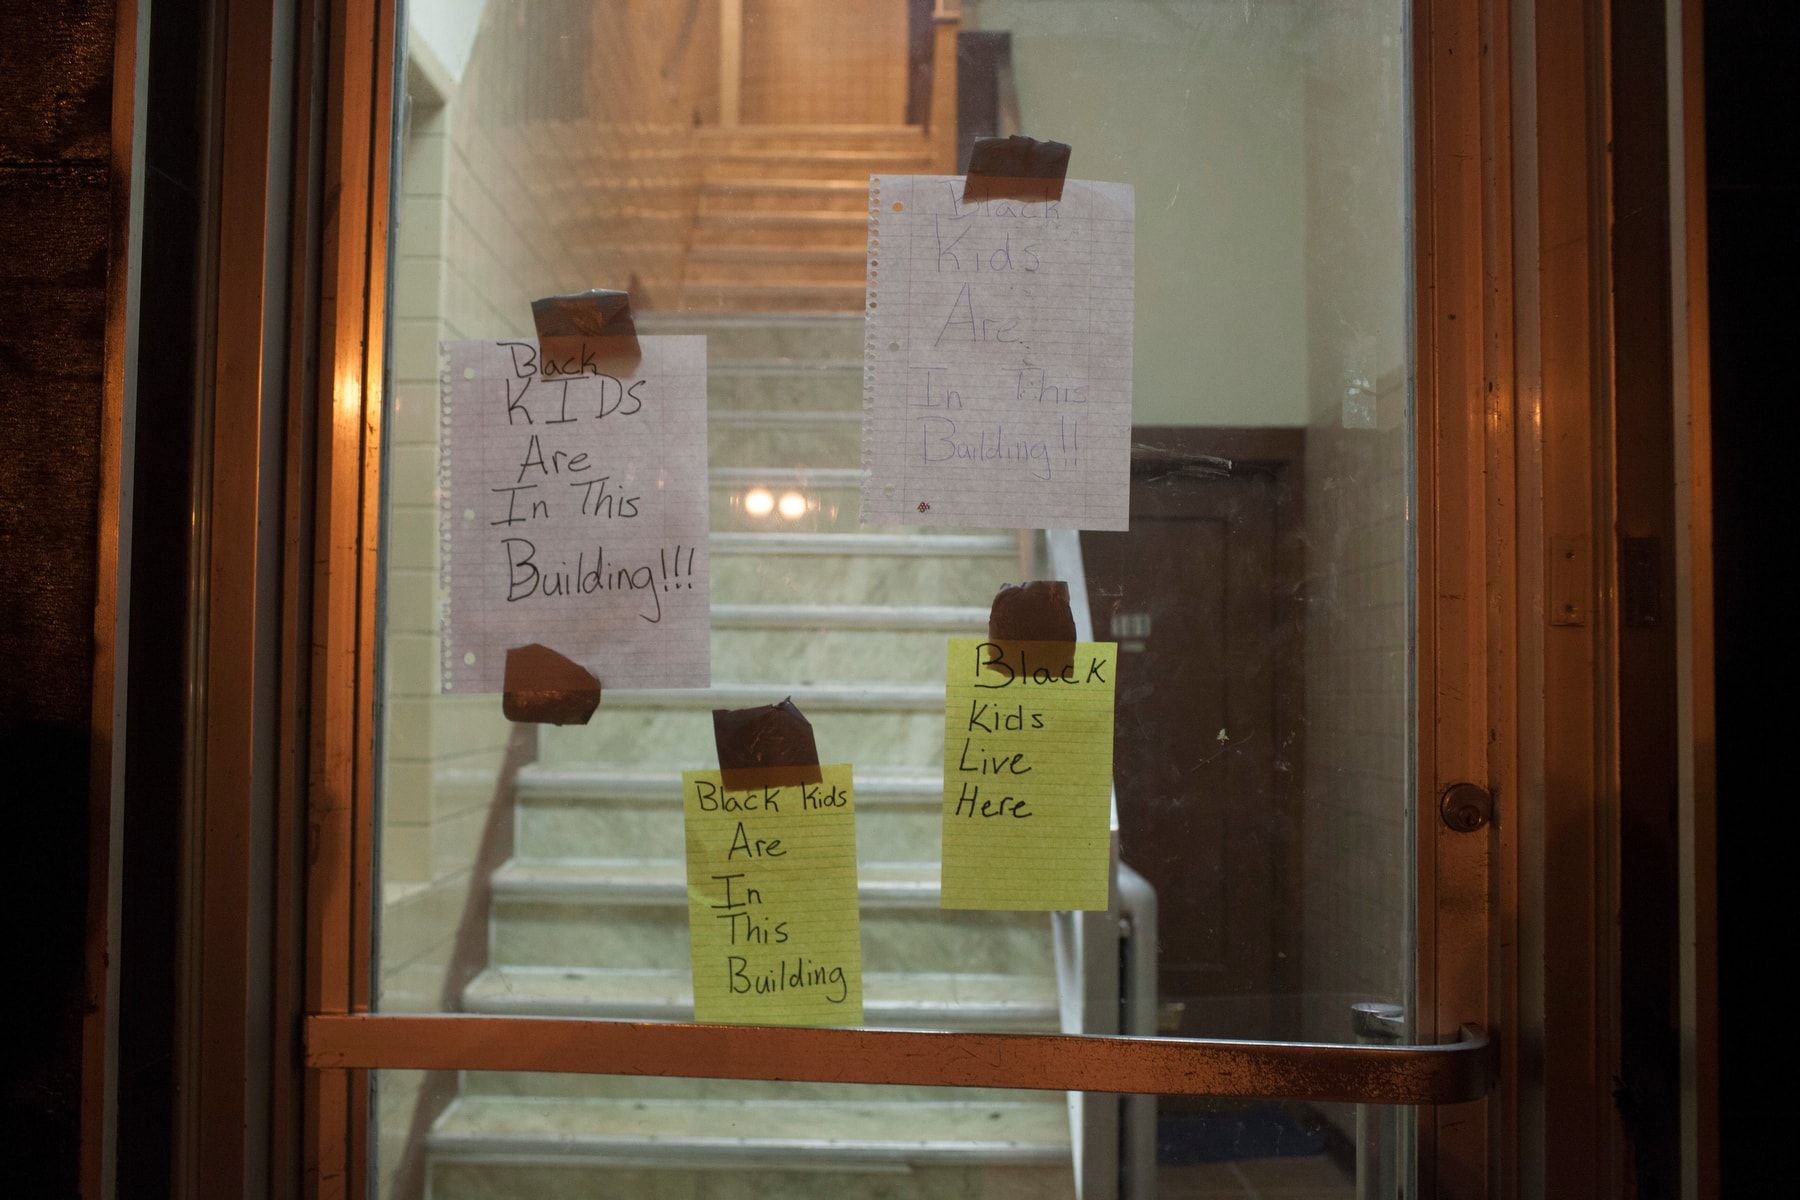 Black
KIDS
Are
In This
Building!!!
Black
Kids
Are
In This
Building!!
Black Kids
Are
In
This
Building
Black
Kids
Live
Here